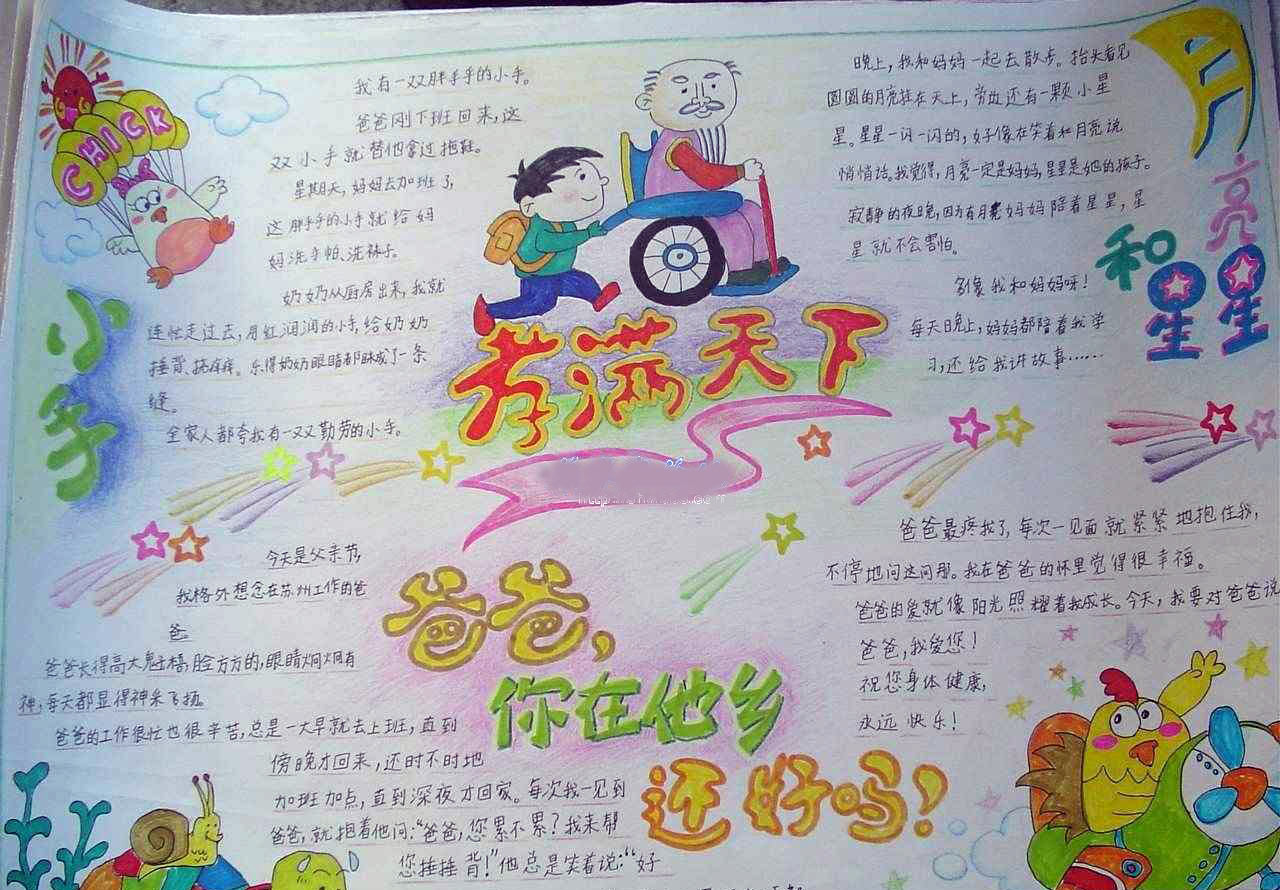 CHICK
小手
我有一双胖乎乎的小手。
爸爸刚下班回来,这
双小手就替他拿过拖鞋。
星期天,妈妈去加班了,
这胖乎乎的小手就给妈
妈洗手帕、洗袜子。
奶奶从厨房出来,我就
连忙走过去,用红润润的小手,给奶奶
捶背、挠痒痒。乐得奶奶眼睛都眯成了一条
缝。
全家人都夸我有一双勤劳的小手。
孝满天下
月亮
和星星
晚上,我和妈妈一起去散步。抬头看见
圆圆的月亮挂在天上,旁边还有一颗小星
星。星星一闪一闪的,好像在笑着和月亮说
悄悄话。我觉得,月亮一定是妈妈,星星是她的孩子。
寂静的夜晚,因为有月亮妈妈陪着星星,星
星就不会害怕。
多像我和妈妈呀!
每天晚上,妈妈都陪着我学
习,还给我讲故事……
爸爸,
你在他乡
还好吗?
今天是父亲节,
我格外想念在苏州工作的爸
爸。
爸爸长得高大魁梧,脸方方的,眼睛炯炯有
神,每天都显得神采飞扬。
爸爸的工作很忙也很辛苦,总是一大早就去上班,直到
傍晚才回来,还时不时地
加班加点,直到深夜才回家。每次我一见到
爸爸,就抱着他问:“爸爸,您累不累?我来帮
您捶捶背!”他总是笑着说:“好
爸爸最疼我了,每次一见面就紧紧地抱住我,
不停地问这问那。我在爸爸的怀里觉得很幸福。
爸爸的爱就像阳光照耀着我成长。今天,我要对爸爸说
爸爸,我爱您!
祝您身体健康,
永远快乐!